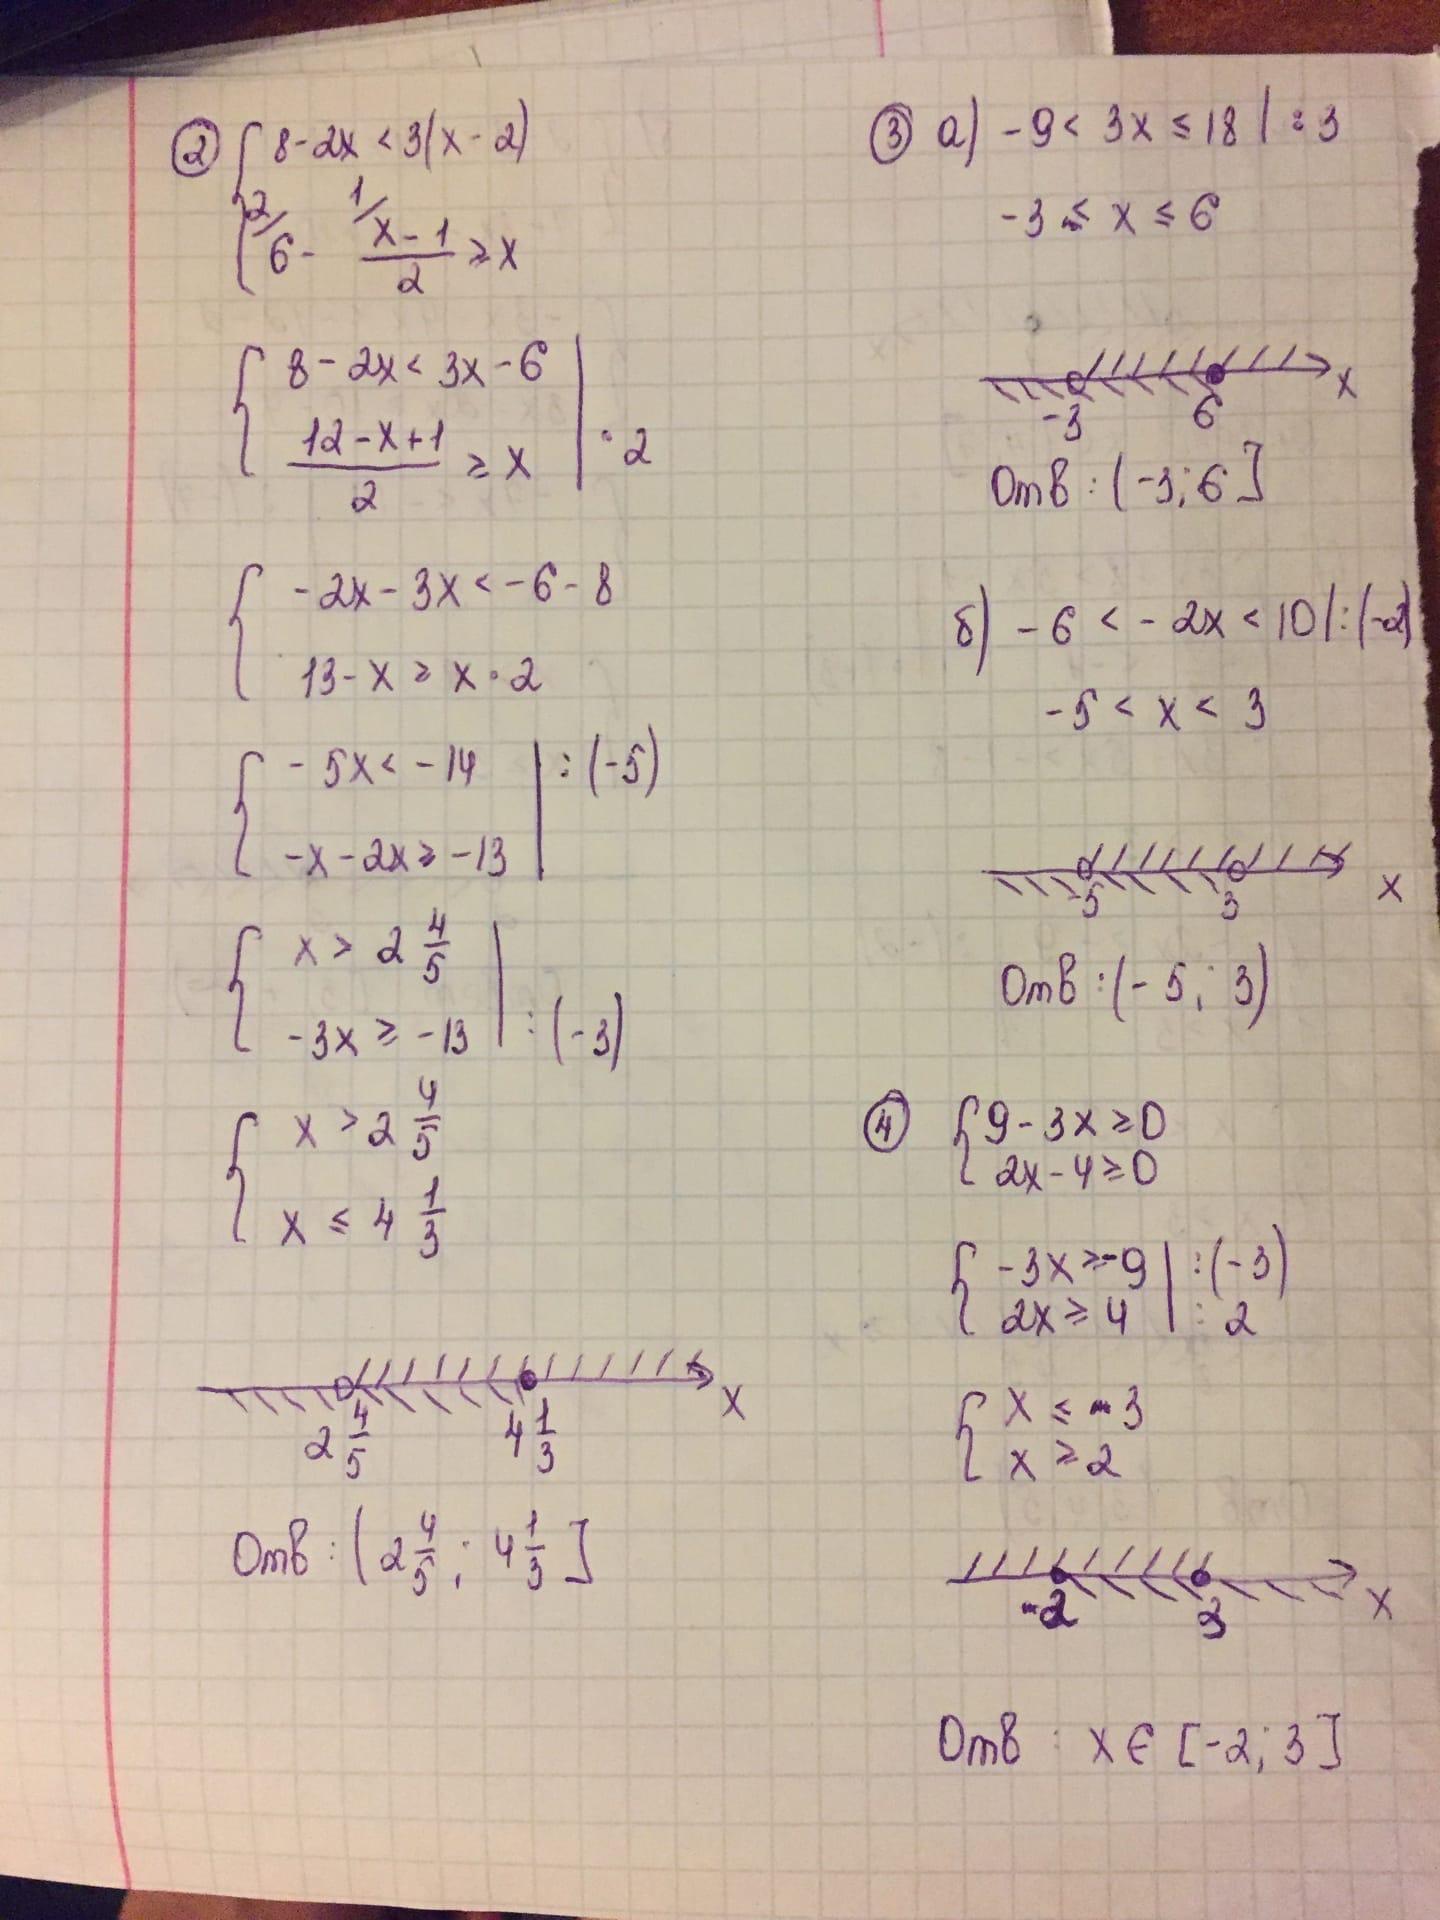 ② { 8 - 2x < 3(x - 2)
2/ 6 - 1/ (x - 1)/2 ≥ x
{ 8 - 2x < 3x - 6
(12 - x + 1)/2 ≥ x | · 2
{ -2x - 3x < -6 - 8
13 - x ≥ x · 2
{ -5x < -14 | : (-5)
-x - 2x ≥ -13
{ x > 2 4/5
-3x ≥ -13 | : (-3)
{ x > 2 4/5
x ≤ 4 1/3
2 4/5 4 1/3 x
Отв : (2 4/5 ; 4 1/3]
③ а) -9 < 3x ≤ 18 | : 3
-3 ≤ x ≤ 6
-3 6 x
Отв : (-3; 6]
б) -6 < -2x < 10 | : (-2)
-5 < x < 3
-5 3 x
Отв : (-5; 3)
④ { 9 - 3x ≥ 0
2x - 4 ≥ 0
{ -3x ≥ -9 | : (-3)
2x ≥ 4 | : 2
{ x ≤ -3
x ≥ 2
-2 3 x
Отв : x ∈ [-2; 3]